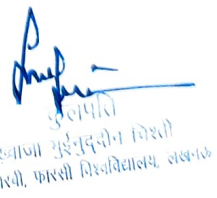 कुलपति
ख्वाजा मुईनुद्दीन चिश्ती
रबी, फारसी विश्वविद्यालय, लखनऊ